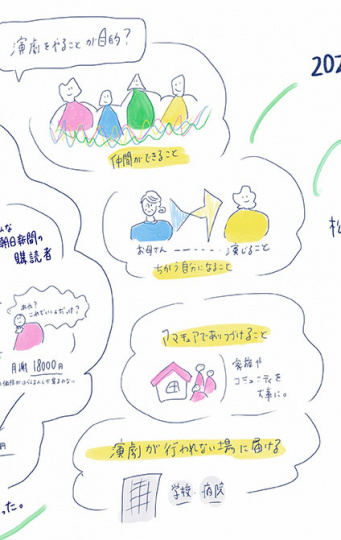 演劇をやることが目的?
202
仲間ができること
朝日新聞の
購読者
お母さん ーーー・・・・演じること
ちがう自分になること
松
あれ?
これでいいんだっけ?
月謝 18000円
アマチュアでありつづけること
家族や
コミュニティを
大事に。
演劇が行われない場に届ける
学校 病院
った。